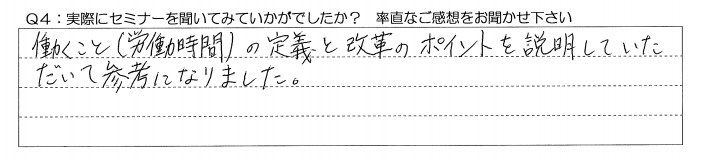 Q4:実際にセミナーを聞いてみていかがでしたか? 率直なご感想をお聞かせ下さい
働くこと(労働時間)の定義と改革のポイントを説明していた
だいて参考になりました。